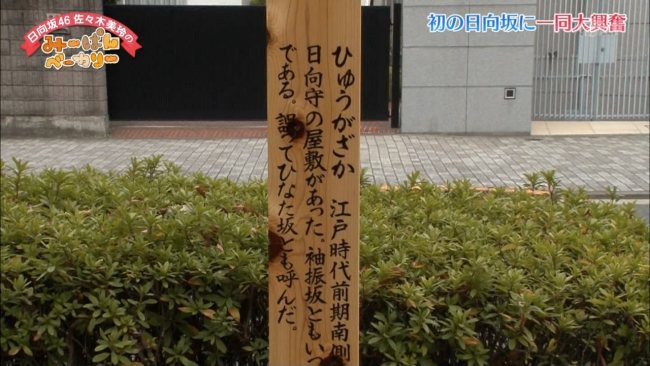 日向坂46 佐々木美玲の
みーぱん
ベーカリー
初の日向坂に一同大興奮
ひゅうがざか 江戸時代前期南側
日向守の屋敷があった。袖振坂ともいっ
である。誤ってひなた坂とも呼んだ。